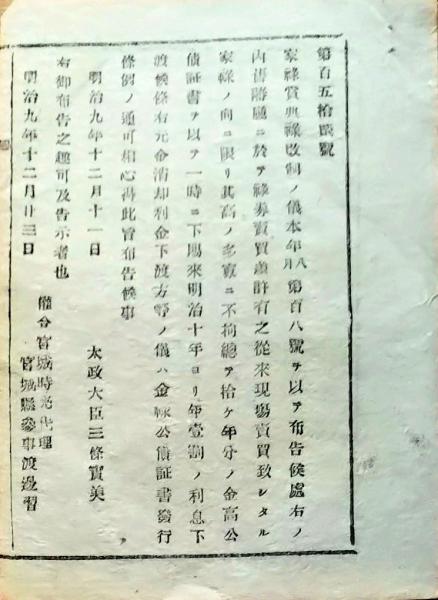 第百五拾四號
家祿賞典祿改制ノ儀本年八月第百八號ヲ以テ布告候處右ノ
内舊藩廳ニ於テ祿券賣買差許有之從來現場賣買致シタル
家祿ノ向ニ限リ其高ノ多寡ニ不拘總テ拾ケ年分ノ金高公
債証書ヲ以テ一時ニ下賜來明治十年ヨリ年壹割ノ利息下
渡候條右元金消却利金下渡方等ノ儀ハ金祿公債証書發行
條例ノ通可相心得此旨布告候事
明治九年十二月十一日
太政大臣三條實美
右御布告之趣可及告示者也
權令宮城時亮代理
明治九年十二月廿三日
宮城縣參事渡邊習